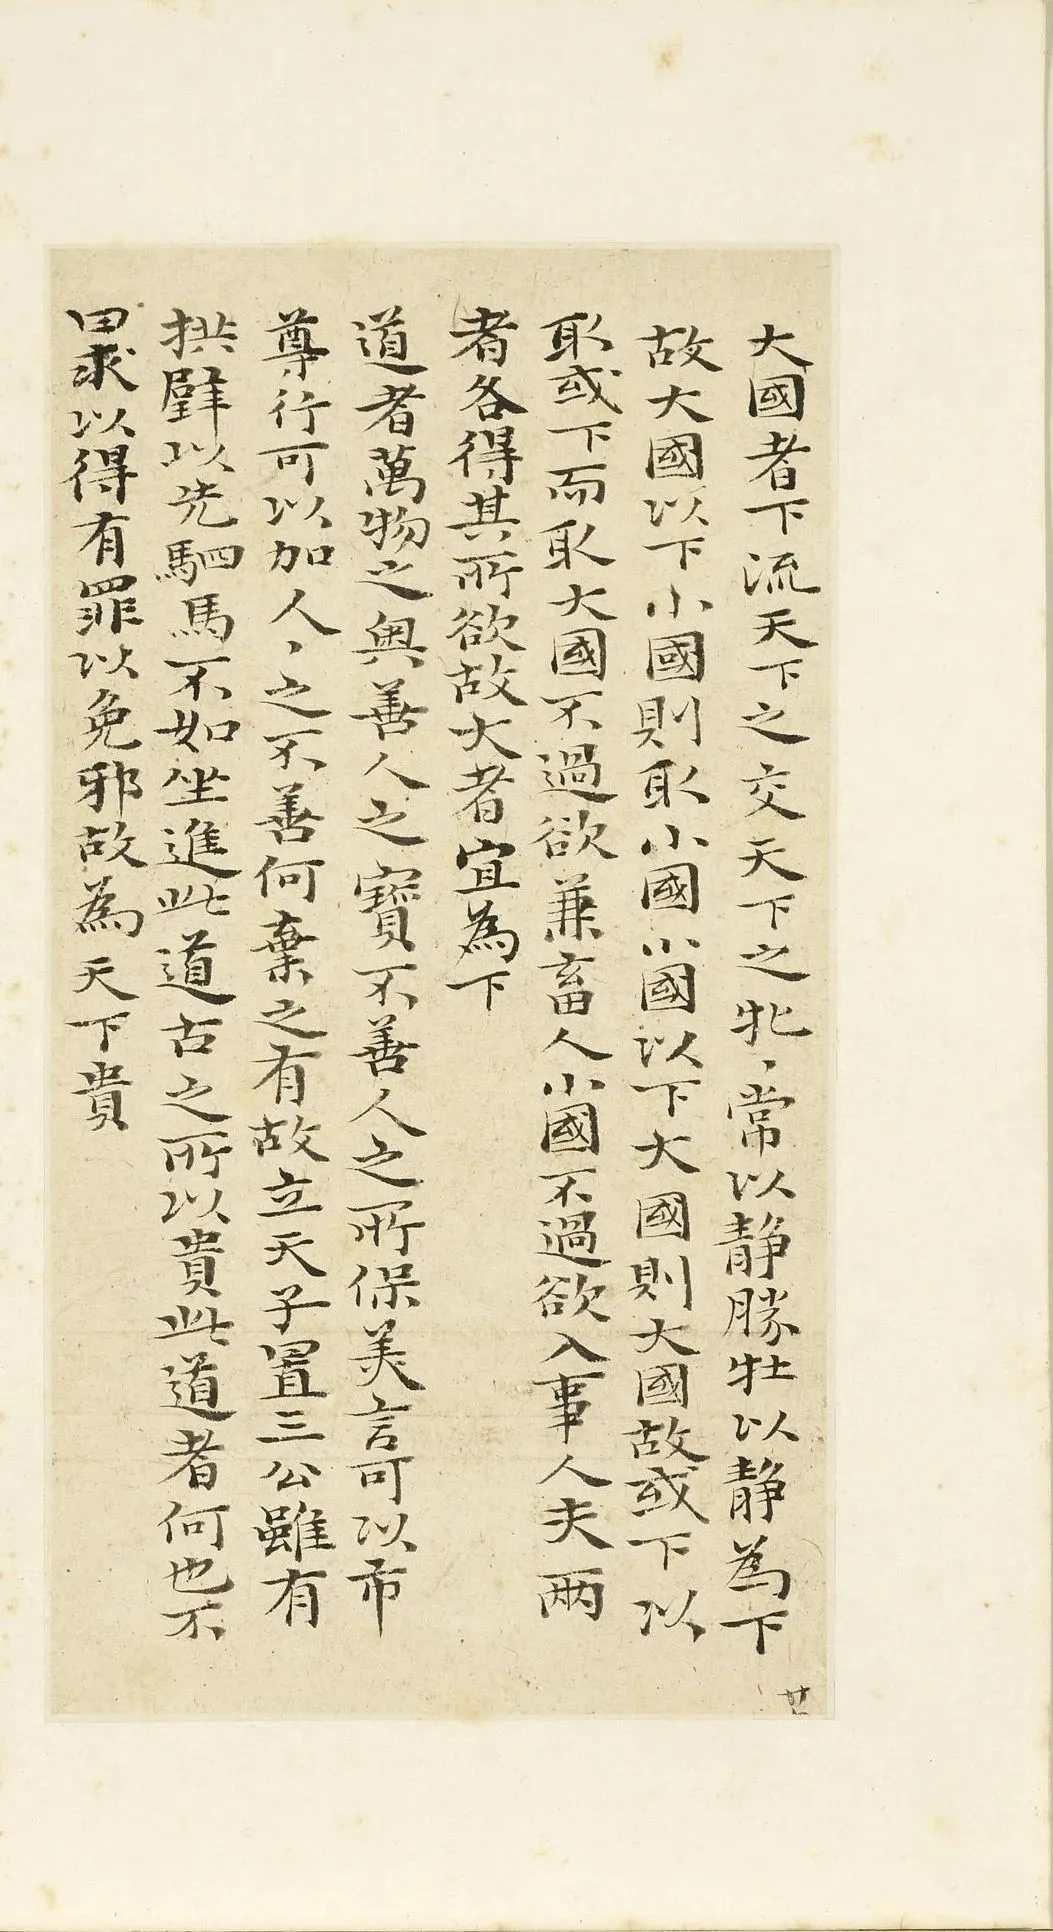 大國者下流天下之交天下之牝〻常以静勝牡以静為下
故大國以下小國則取小國小國以下大國則大國故或下以
取或下而取大國不過欲兼畜人小國不過欲入事人夫兩
者各得其所欲故大者宜為下
道者萬物之奥善人之寶不善人之所保美言可以市
尊行可以加人〻之不善何棄之有故立天子置三公雖有
拱璧以先駟馬不如坐進此道古之所以貴此道者何也不
曰求以得有罪以免邪故為天下貴
廿